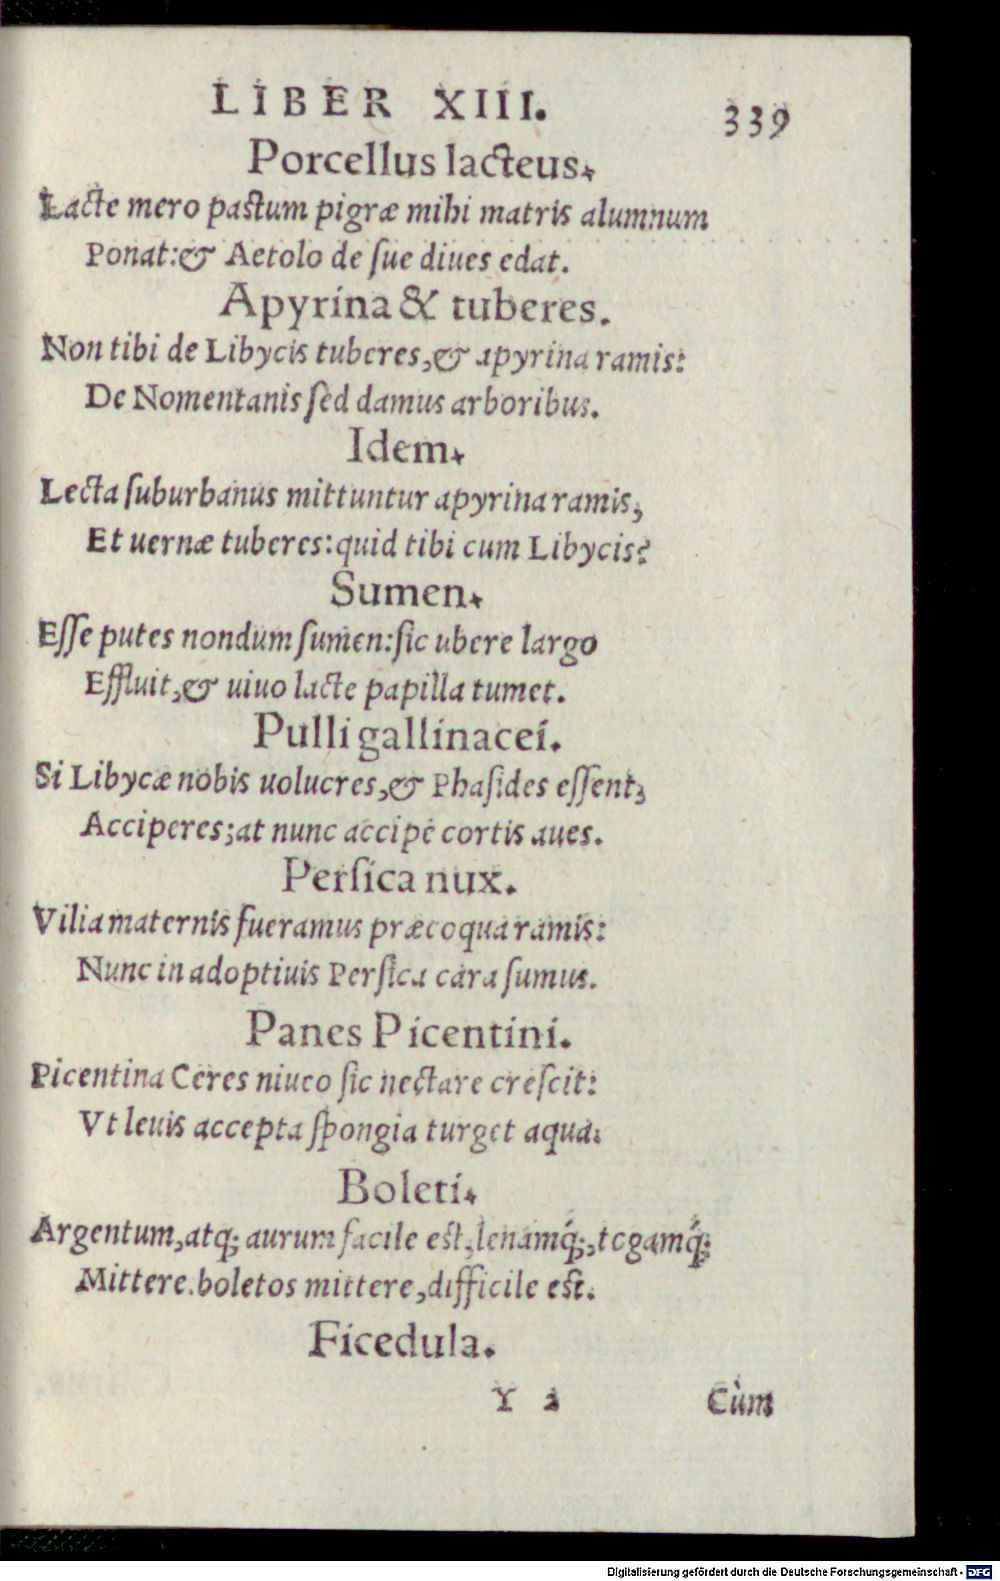 LIBER XIII. 339
Porcellus lacteus.
Lacte mero pastum pigræ mihi matris alumnum
Ponat:& Aetolo de ſue diues edat.
Apyrina & tuberes.
Non tibi de Libycis tuberes,& apyrina ramis:
De Nomentanis ſed damus arboribus.
Idem.
Lecta ſuburbanus mittuntur apyrina ramis,
Et uernæ tuberes:quid tibi cum Libycis?
Sumen.
Eſſe putes nondum ſumen:ſic ubere largo
Effluit,& uiuo lacte papilla tumet.
Pulli gallinacei.
Si Libycæ nobis uolucres,& Phaſides eſſent,
Acciperes;at nunc accipe cortis aues.
Perſica nux.
Vilia maternis fueramus præcoqua ramis:
Nunc in adoptiuis Perſica cara ſumus.
Panes Picentini.
Picentina Ceres niueo ſic nectare creſcit:
Vt leuis accepta ſpongia turget aqua.
Boleti.
Argentum,atq; aurum facile est,lenamq́;,togamq́;
Mittere.boletos mittere,difficile est.
Ficedula.
Y 2 Cùm
Digitalisierung gefördert durch die Deutsche Forschungsgemeinschaft - DFG